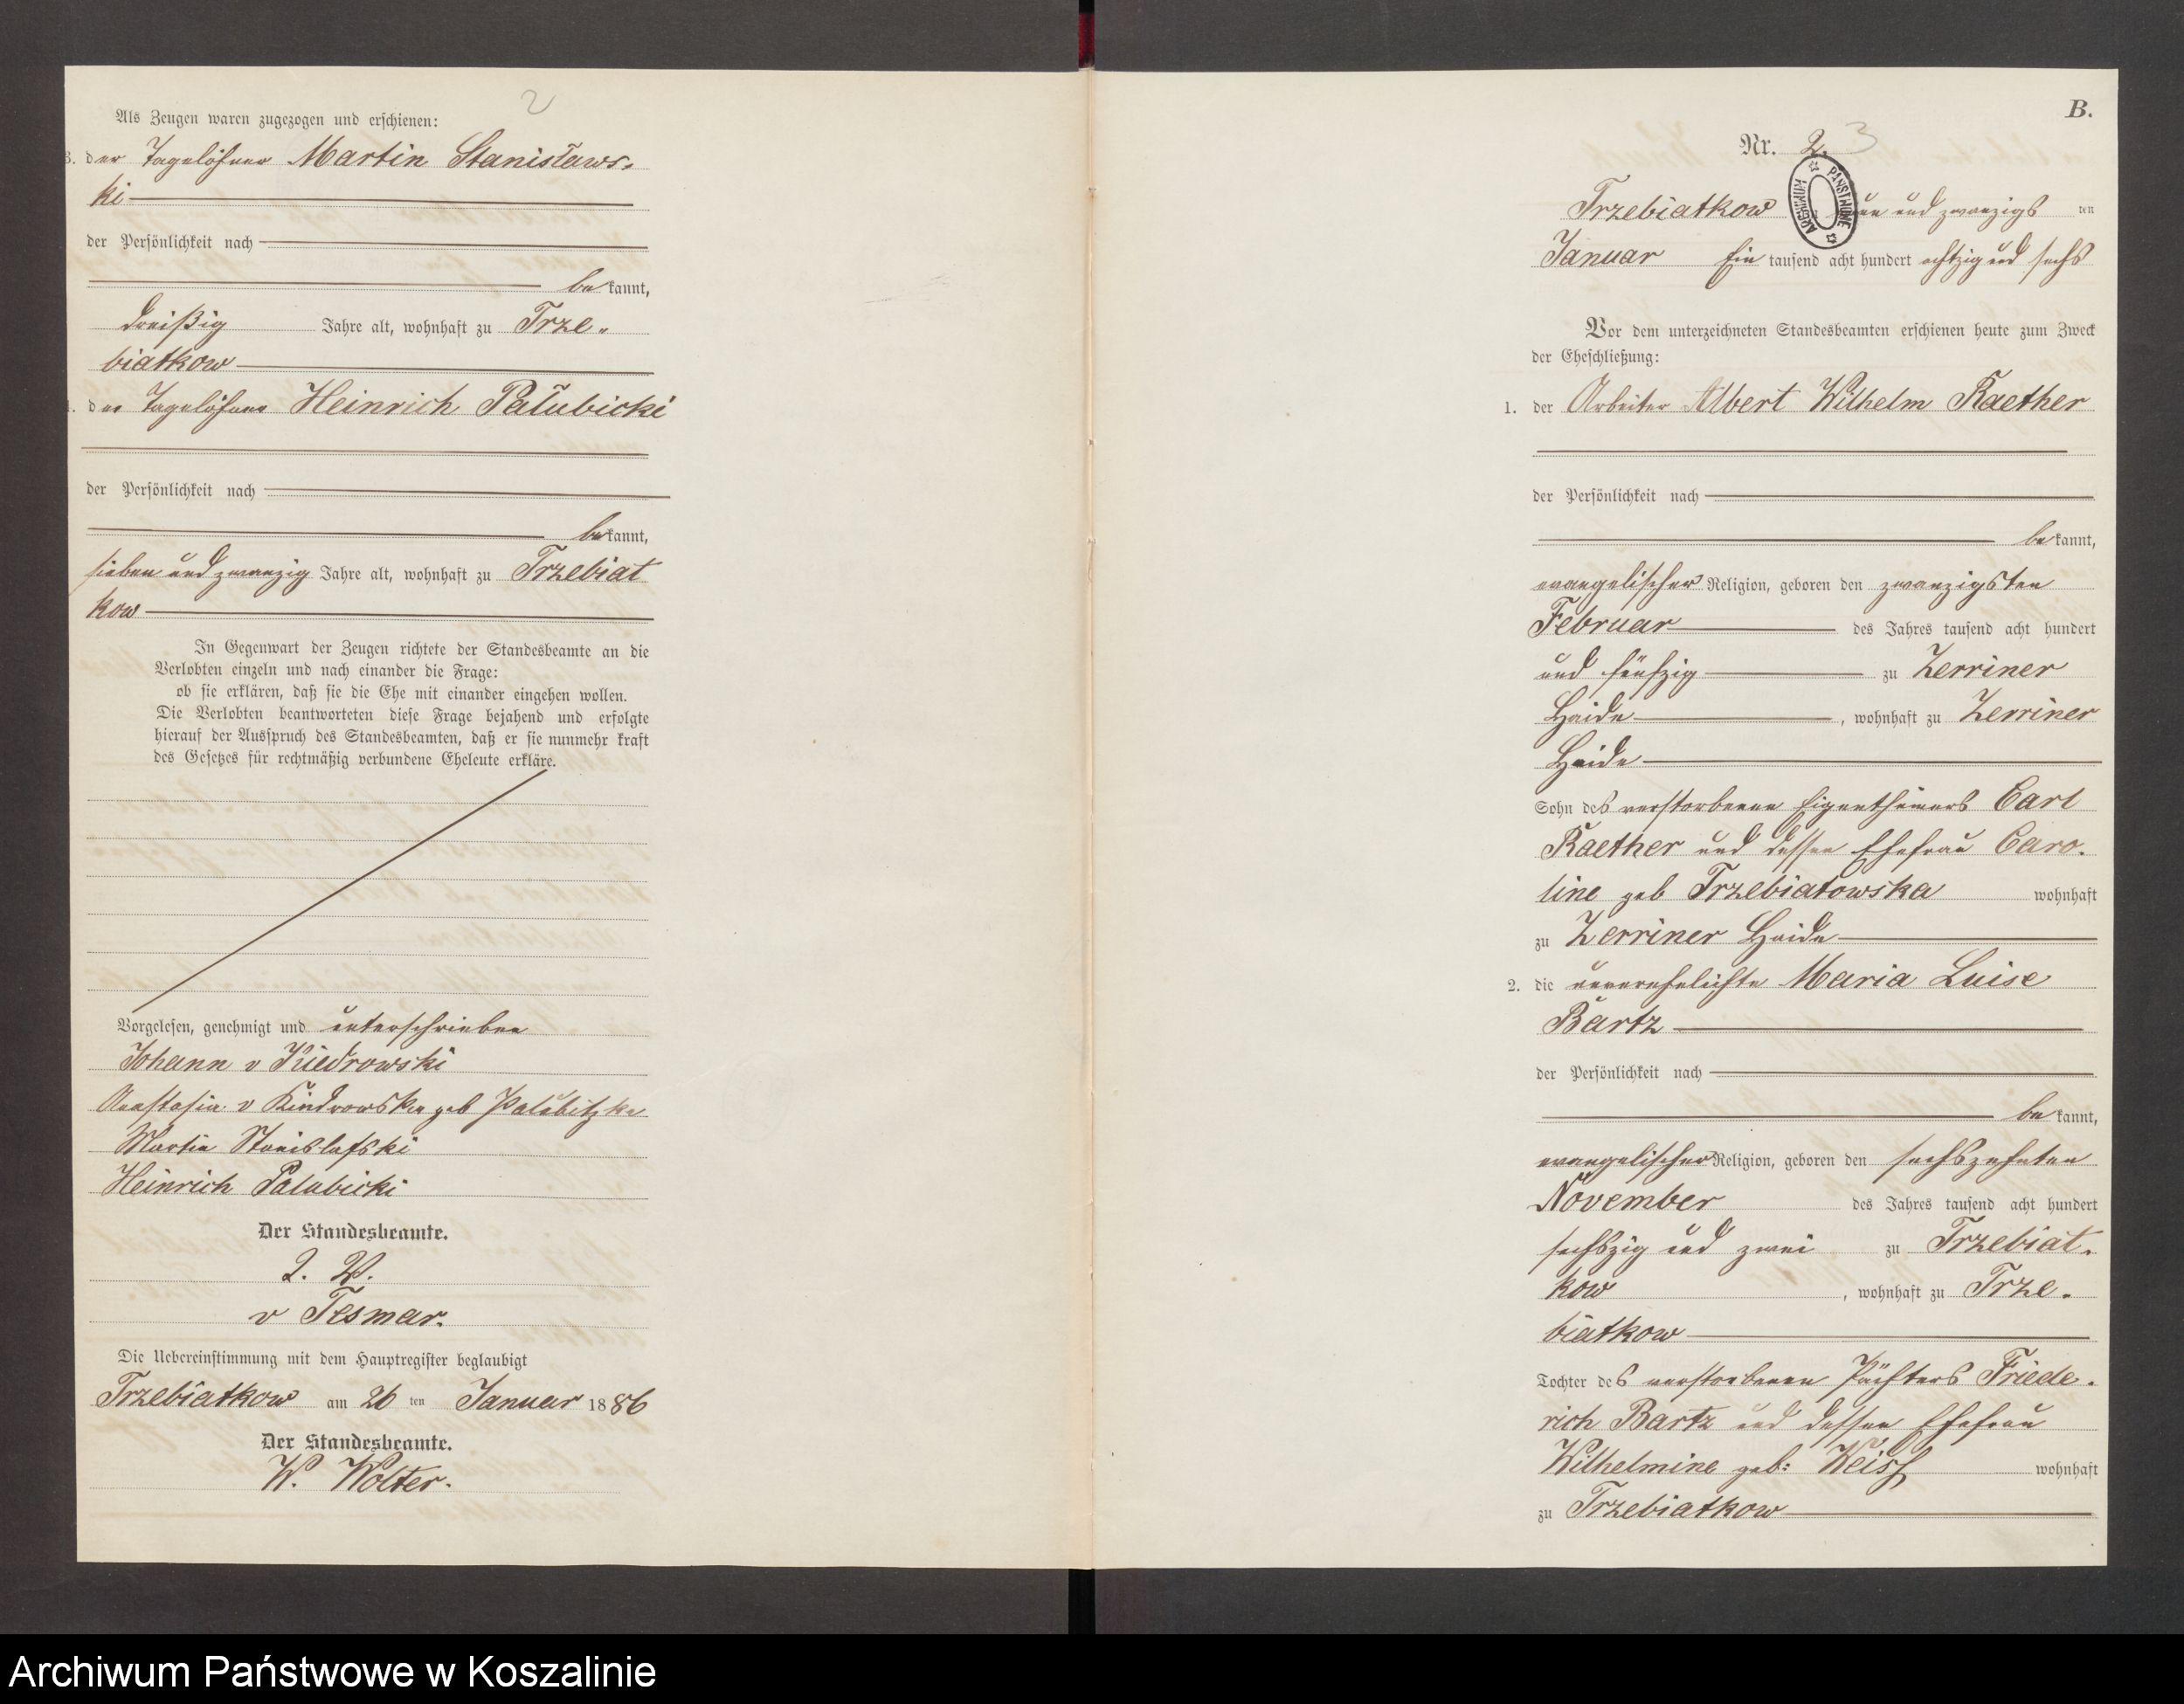 2
Als Zeugen waren zugezogen und erschienen:
3. der Tagelöhner Martin Stanisławs-
ki
der Persönlichkeit nach
bekannt,
dreißig Jahre alt, wohnhaft zu Trze-
biatkow
der Tagelöhner Heinrich Pałubicki
der Persönlichkeit nach
bekannt,
sieben und zwanzig Jahre alt, wohnhaft zu Trzebiat
kow
In Gegenwart der Zeugen richtete der Standesbeamte an die
Verlobten einzeln und nach einander die Frage:
ob sie erklären, daß sie die Ehe mit einander eingehen wollen.
Die Verlobten beantworteten diese Frage bejahend und erfolgte
hierauf der Ausspruch des Standesbeamten, daß er sie nunmehr kraft
des Gesetzes für rechtmäßig verbundene Eheleute erkläre.
Vorgelesen, genehmigt und unterschrieben
Johann v Kiedrowski
Anastasia v Kiedrowska geb Palubitzka
Martin Stanislafski
Heinrich Palubicki
Der Standesbeamte.
I. V.
v Tesmar.
Die Uebereinstimmung mit dem Hauptregister beglaubigt
Trzebiatkow am 26 ten Januar 1886
Der Standesbeamte.
W. Wolter.
B.
Nr. 2. 3
ARCHIWUM PAŃSTWOWE
Trzebiatkow und zwanzigs ten
Januar Ein tausend acht hundert achtzig und sechs
Vor dem unterzeichneten Standesbeamten erschienen heute zum Zweck
der Eheschließung:
1. der Arbeiter Albert Wilhelm Raether
der Persönlichkeit nach
bekannt,
evangelischer Religion, geboren den zwanzigsten
Februar des Jahres tausend acht hundert
und fünfzig zu Zerriner
Haide, wohnhaft zu Zerriner
Haide
Sohn des verstorbenen Eigenthümers Carl
Raether und dessen Ehefrau Caro-
line geb Trzebiatowska wohnhaft
zu Zerriner Haide
2. die unverehelichte Maria Luise
Bartz
der Persönlichkeit nach
bekannt,
evangelischer Religion, geboren den sechszehnten
November des Jahres tausend acht hundert
sechszig und zwei zu Trzebiat-
kow, wohnhaft zu Trze-
biatkow
Tochter des verstorbenen Pächters Friede-
rich Bartz und dessen Ehefrau
Wilhelmine geb: Weiss wohnhaft
zu Trzebiatkow
Archiwum Państwowe w Koszalinie